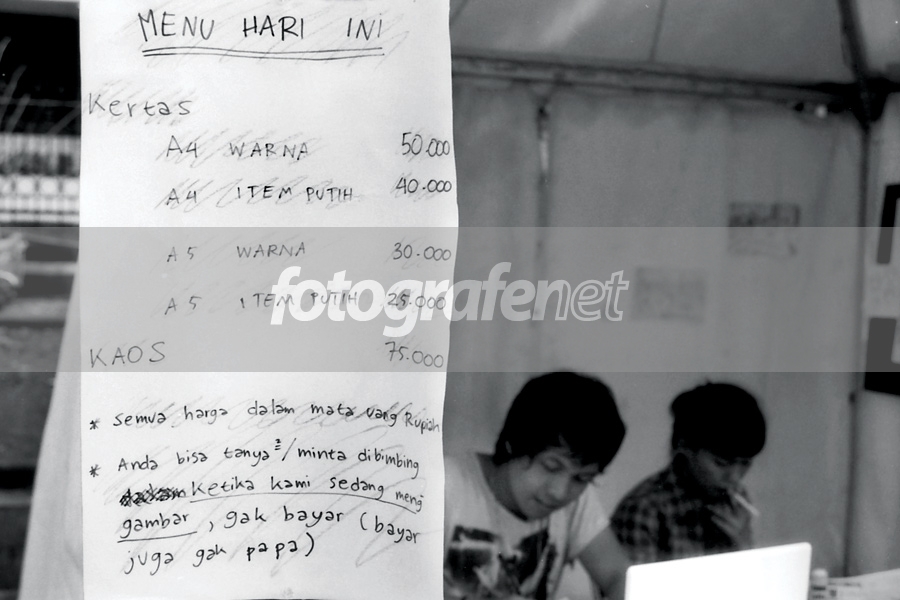 MENU HARI INI
Kertas
A4 WARNA 50.000
A4 ITEM PUTIH 40.000
A5 WARNA 30.000
A5 ITEM PUTIH 25.000
fotografenet
KAOS 75.000
* semua harga dalam mata uang Rupiah
* Anda bisa tanya² / minta dibimbing
ketika kami sedang meng
gambar, gak bayar (bayar
juga gak papa)